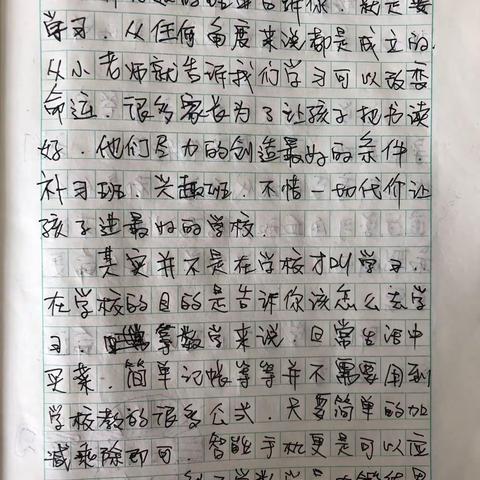 就是要
学习．从任何角度来说都是成立的．
从小老师就告诉我们学习可以改变
命运．很多家长为了让孩子把书读
好．他们尽力的创造最好的条件．
补习班．兴趣班．不惜一切代价让
孩子进最好的学校．
其实并不是在学校才叫学习．
在学校的目的是告诉你该怎么去学
习．拿数学来说．日常生活中
买菜．简单记帐等等并不需要用到
学校教的很多公式．只要简单的加
减乘除即可．智能手机更是可以应